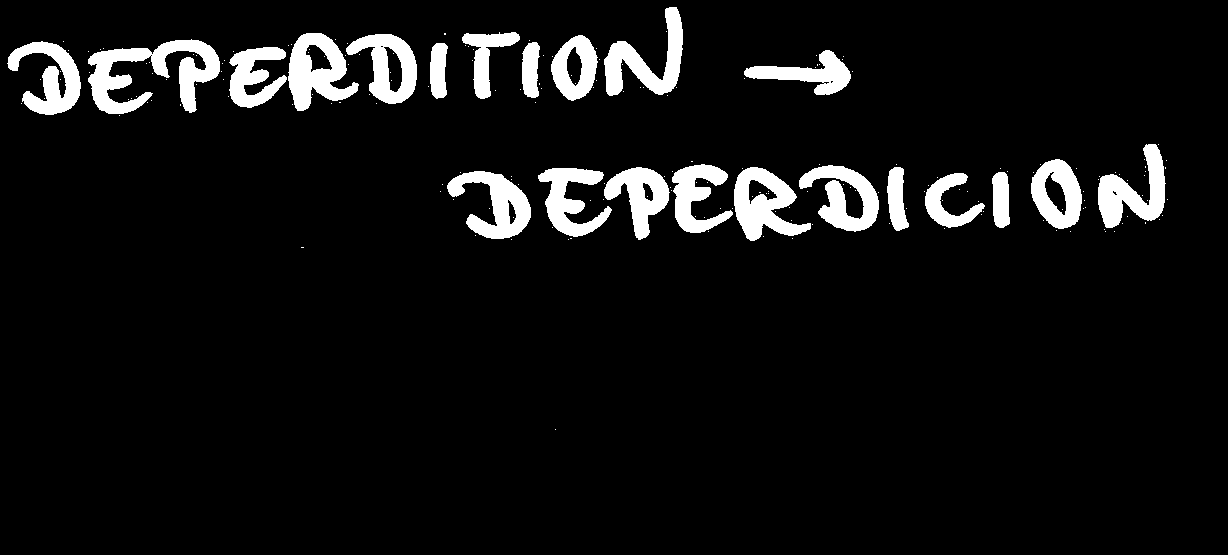 DEPERDITION →
DEPERDICION